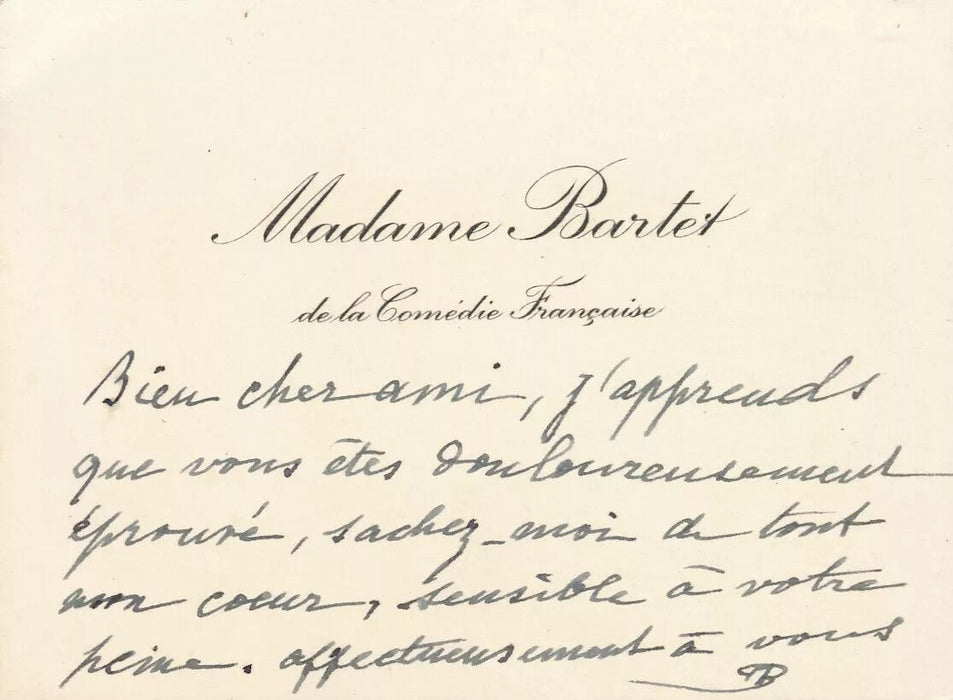 Madame Bartet
de la Comédie Française
Bien cher ami, j'apprends
que vous êtes douloureusement
éprouvé, sachez-moi de tout
mon coeur, sensible à votre
peine. affectueusement à vous
B